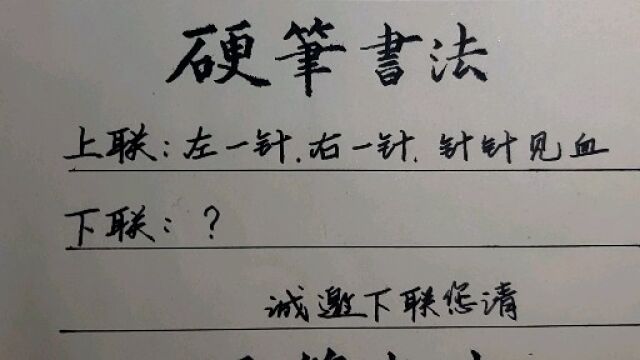 硬筆書法
上联：左一针．右一针．针针见血
下联：？
诚邀下联您请